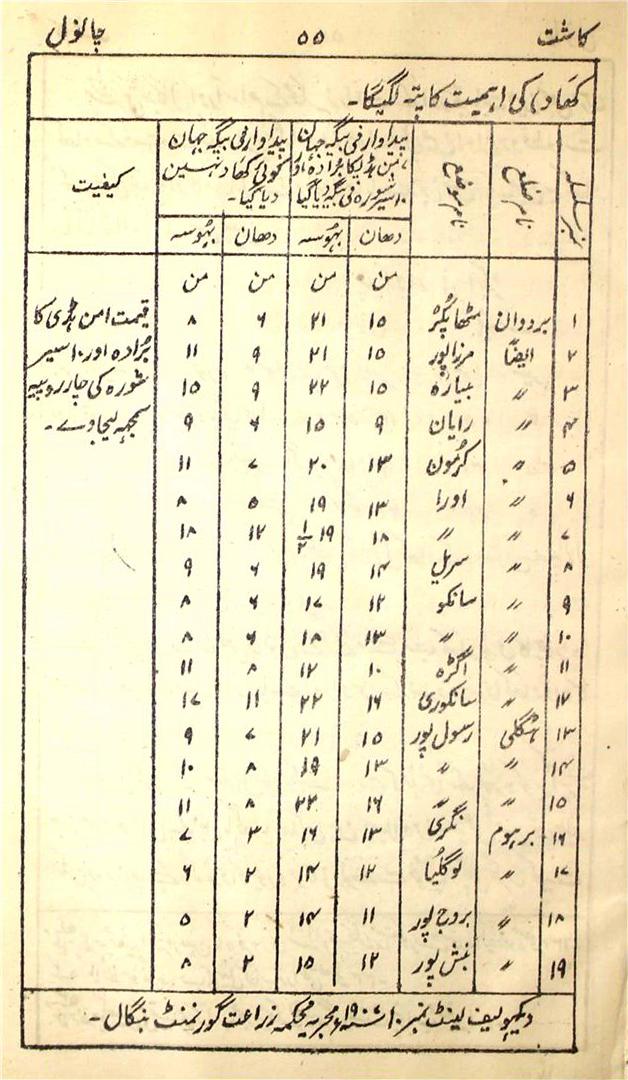 کاشت ۵۵ چانول
کھاد، کی اہمیت کا پتہ لگیگا۔
نمبر سلسلہ | نام ضلع | نام موضع | پیداوار فی بیگہ جہان ۳ من ہڈیکا بُرادہ اور ۱۰ سیر شورہ فی بیگہ دیا گیا | پیداوار فی بیگہ جہان کوئی کھاد نہین دیا گیا۔ | کیفیت
دھان | بھوسہ | دھان | بھوسہ
من | من | من | من
۱ | بردوان | مٹھاپُکڑ | ۱۵ | ۲۱ | ۶ | ۸ | قیمت ۳ من ہڈی کا
۲ | ایضاً | مرزاپور | ۱۵ | ۲۱ | ۹ | ۱۱ | بُرادہ اور ۱۰ سیر
۳ | 〃 | بیارہ | ۱۵ | ۲۲ | ۹ | ۱۵ | شورہ کی چار روپیہ
۴ | 〃 | رایان | ۹ | ۱۵ | ۶ | ۹ | سمجھہ لیجاوے۔
۵ | 〃 | کرمون | ۱۳ | ۲۰ | ۷ | ۱۱
۶ | 〃 | اورا | ۱۳ | ۱۹ | ۵ | ۸
۷ | 〃 | 〃 | ۱۸ | ۱۹ ۱/۲ | ۱۲ | ۱۸
۸ | 〃 | سریل | ۱۴ | ۱۹ | ۶ | ۹
۹ | 〃 | سانکو | ۱۲ | ۱۷ | ۶ | ۸
۱۰ | 〃 | 〃 | ۱۳ | ۱۸ | ۶ | ۸
۱۱ | 〃 | اگڑہ | ۱۰ | ۱۲ | ۸ | ۱۱
۱۲ | 〃 | سانکوری | ۱۶ | ۲۲ | ۱۱ | ۱۷
۱۳ | ہگلی | رسول پور | ۱۵ | ۲۱ | ۷ | ۹
۱۴ | 〃 | 〃 | ۱۳ | ۱۹ | ۸ | ۱۰
۱۵ | 〃 | 〃 | ۱۶ | ۲۳ | ۸ | ۱۱
۱۶ | بربہوم | نگری | ۱۳ | ۱۶ | ۳ | ۷
۱۷ | 〃 | لوگلیا | ۱۲ | ۱۴ | ۲ | ۶
۱۸ | 〃 | بروج پور | ۱۱ | ۱۴ | ۲ | ۵
۱۹ | 〃 | بنش پور | ۱۲ | ۱۵ | ۳ | ۸
دیکھو لیف لیٹ نمبر ۱۰ ۱۹۰۷ء مجریہ محکمہ زراعت گورنمنٹ بنگال۔